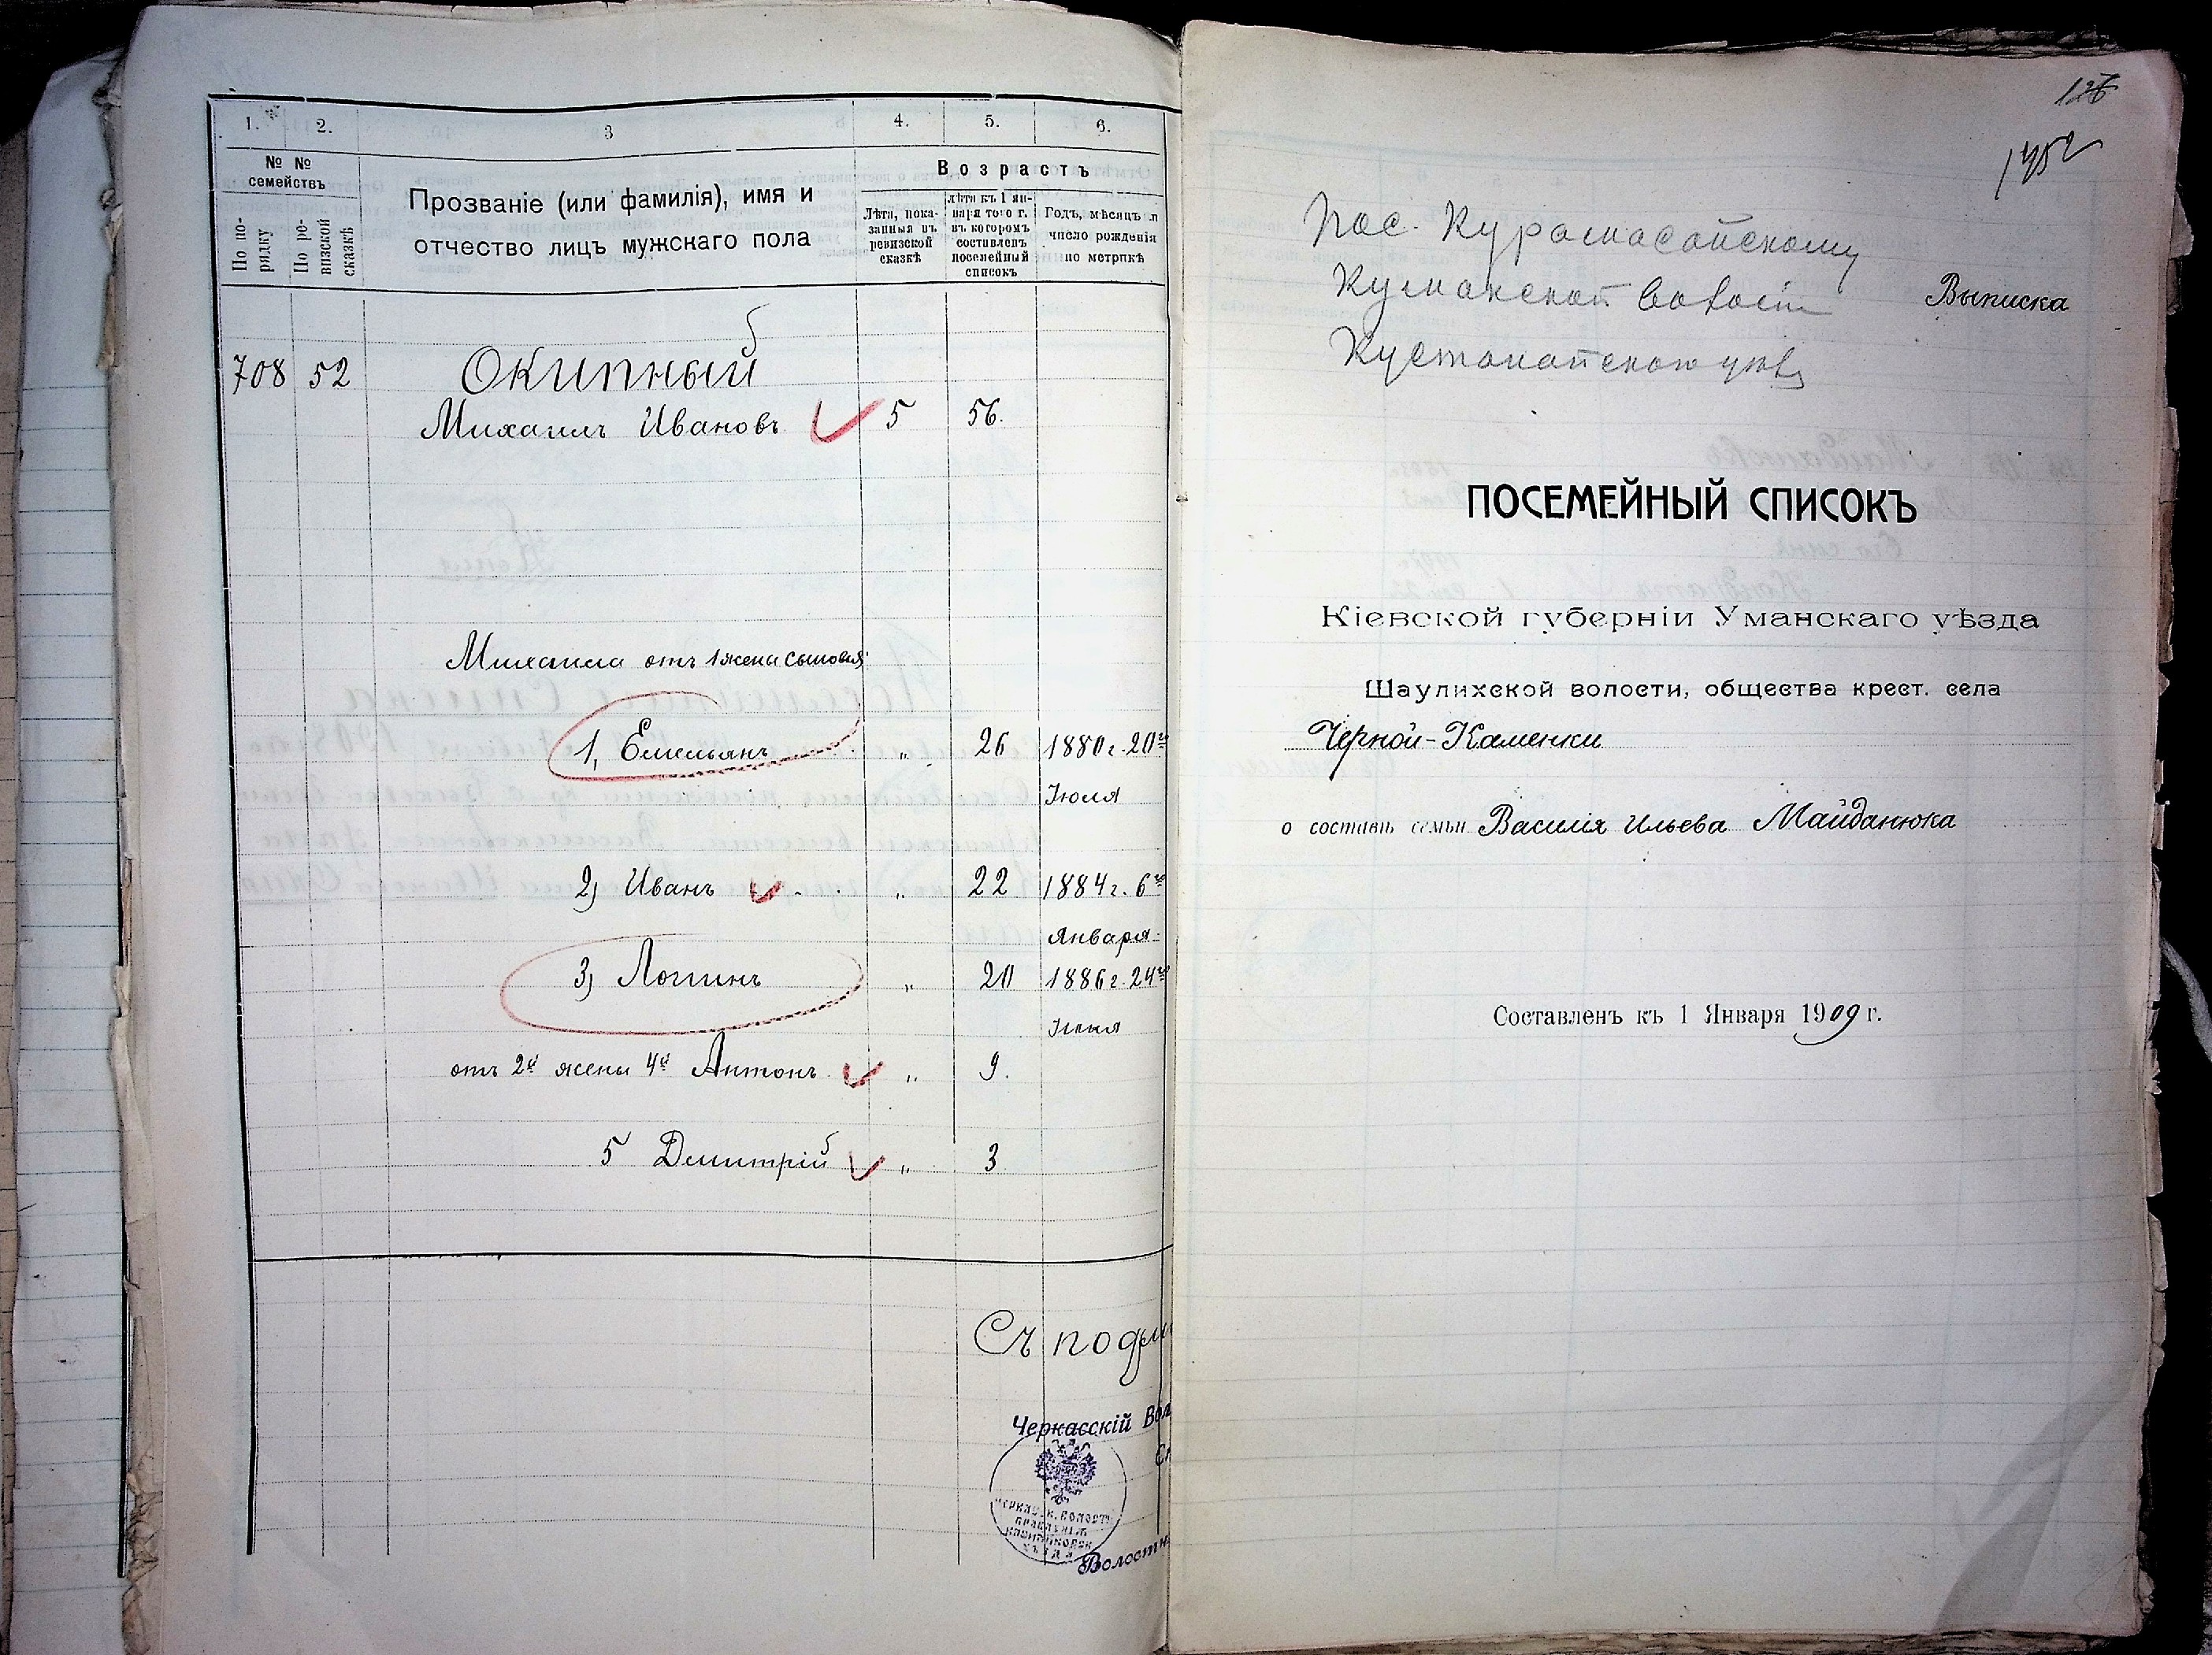 1. 2. 3 4. 5. 6.
№ № семействъ
По порядку
По ревизской сказкѣ
Прозваніе (или фамилія), имя и
отчество лицъ мужскаго пола
Возрастъ
Лѣта, показанныя въ ревизской сказкѣ
лѣта къ 1 января того г. въ которомъ составленъ посемейный списокъ
Годъ, мѣсяцъ и число рожденія по метрикѣ
708 52 Окипный
Михаилъ Ивановъ 5 56.
Михаила отъ 1 жены сыновья:
1, Емельянъ „ 26 1880 г. 20го
Іюля
2) Иванъ „ 22 1884 г. 6го
Января
3) Логинъ „ 20 1886 г. 24го
Іюня
отъ 2й жены 4й Антонъ „ 9.
5 Дмитрій „ 3
Съ подли
Черкасскій Вол
Волостн
126
1752
Пос. Курамасайскому
Кумакской волости
Кустанайского уѣзд
Выписка
ПОСЕМЕЙНЫЙ СПИСОКЪ
Кіевской губерніи Уманскаго уѣзда
Шаулихской волости, общества крест. села
Черной-Каменки
о составѣ семьи Василія Ильева Майданюка
Составленъ къ 1 Января 1909 г.